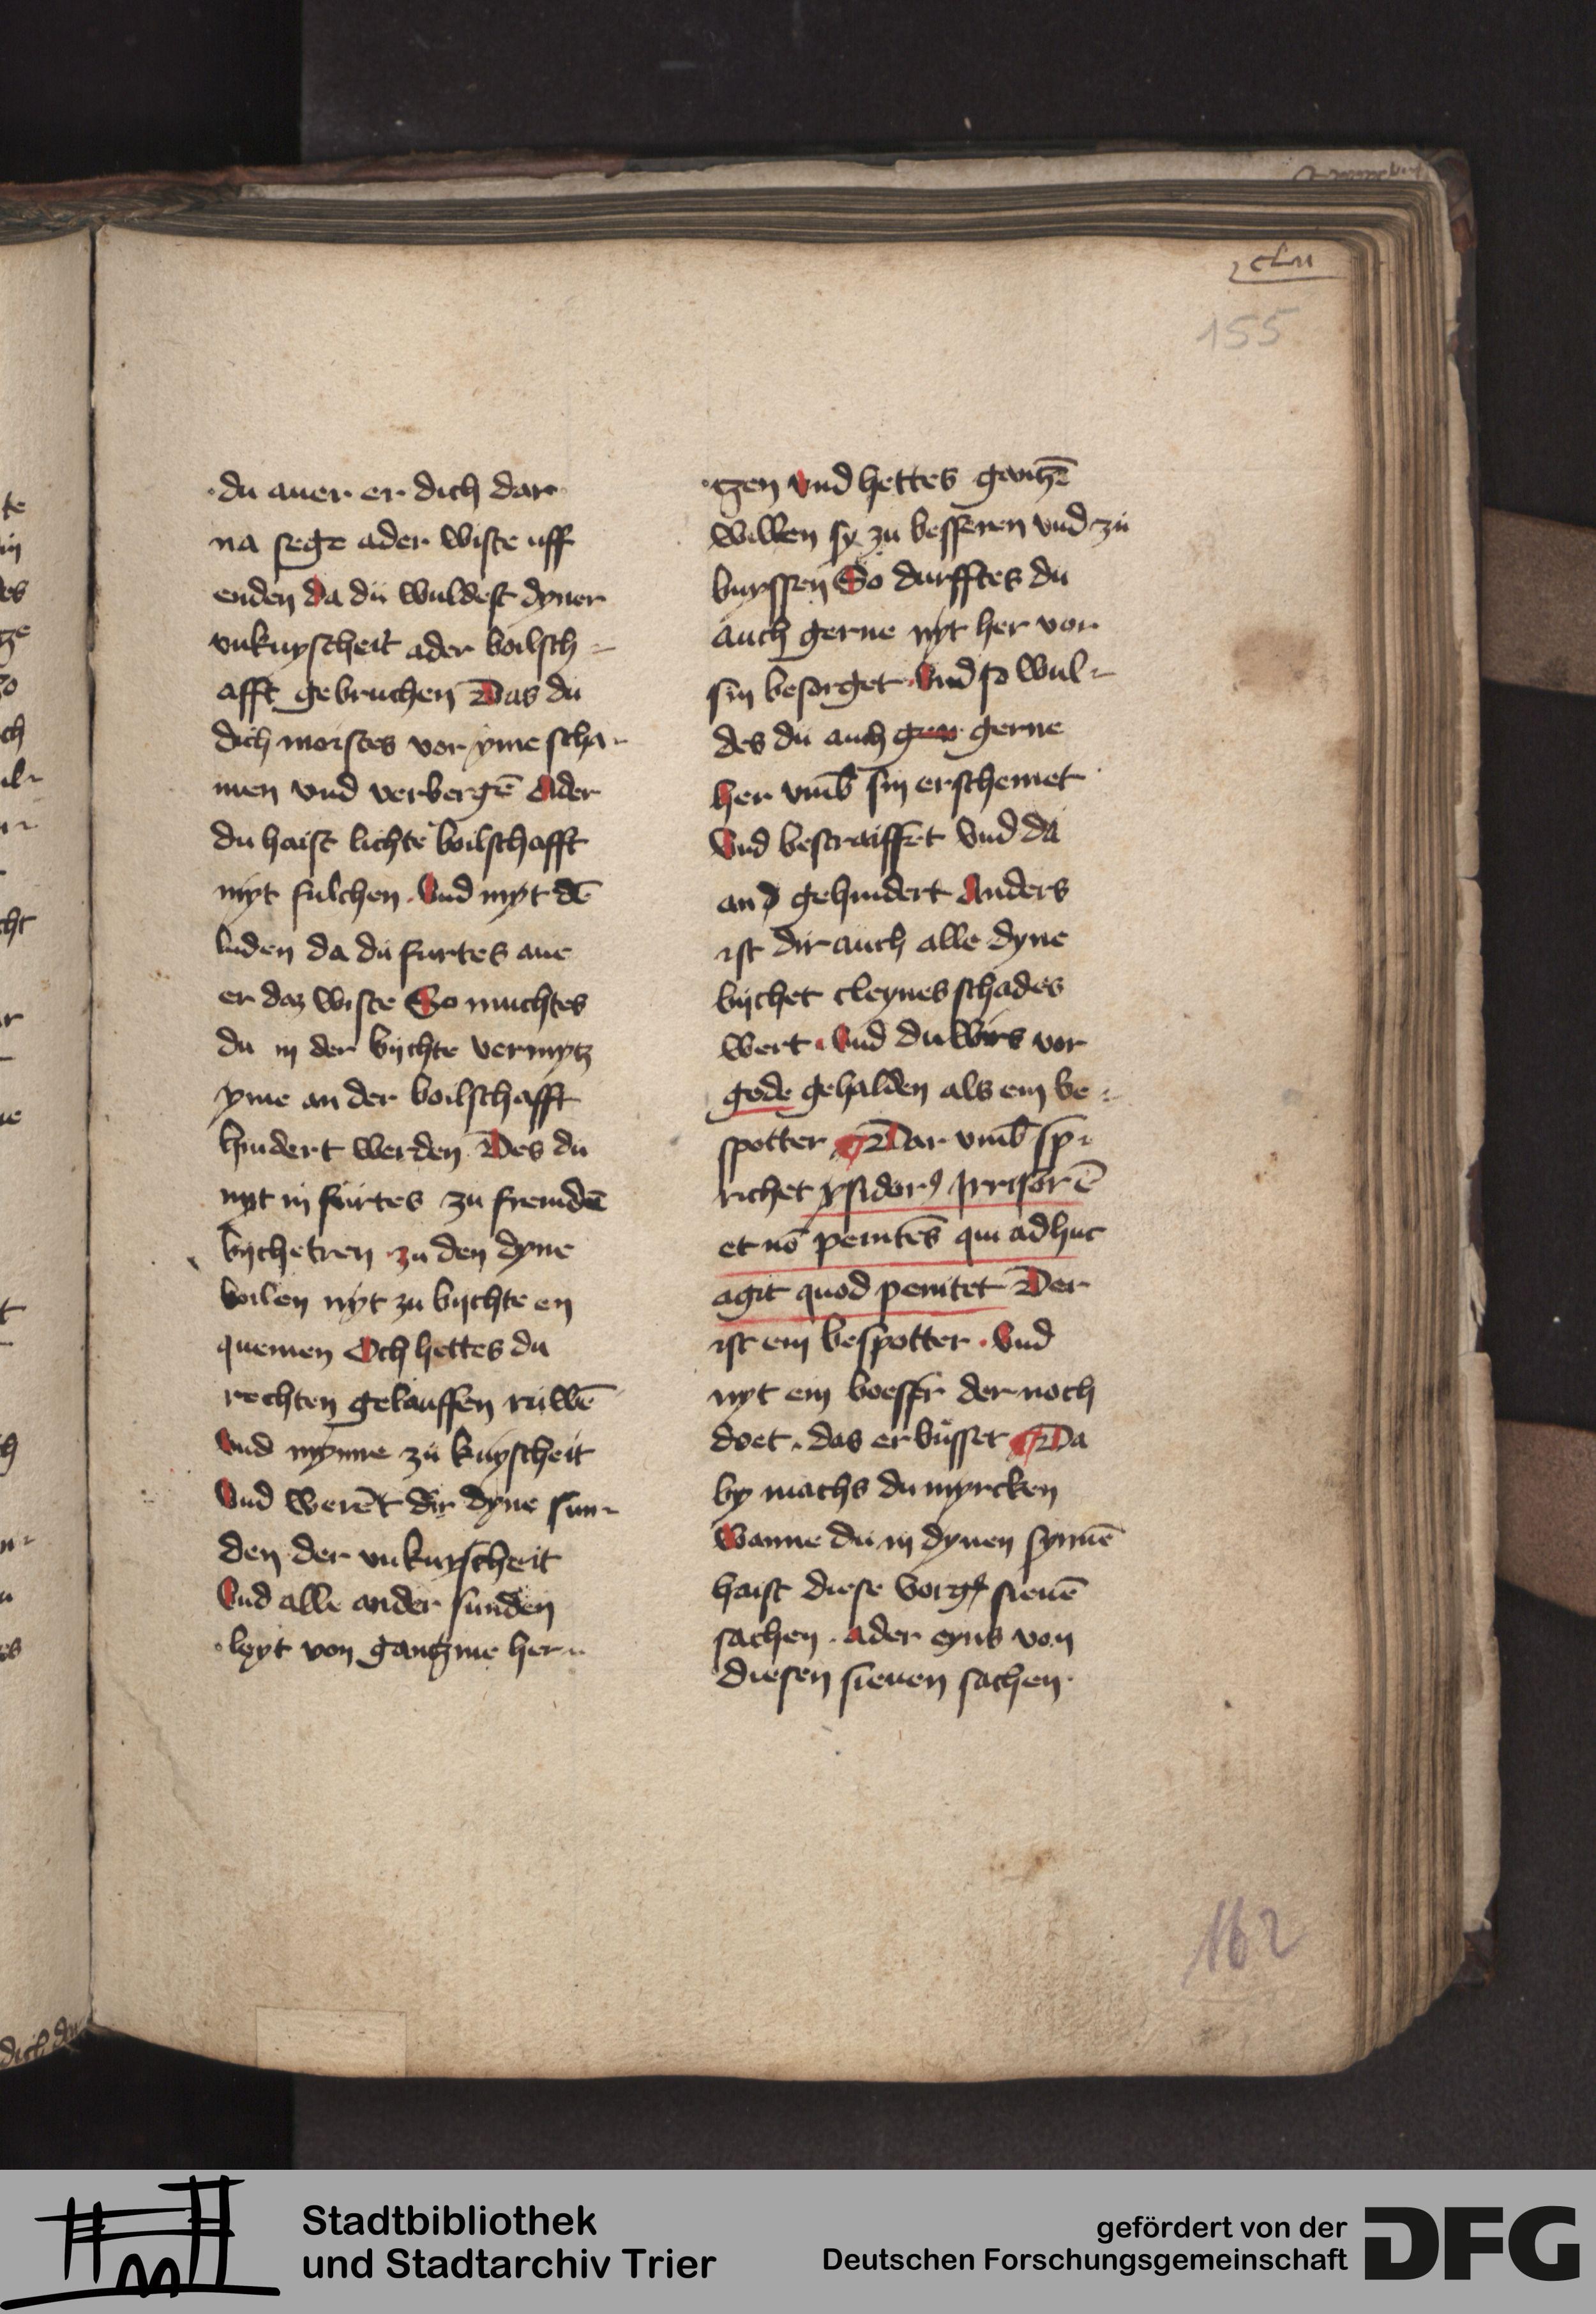 clu
155
du auer er dich dar
na sege ader wiste uff
enden da du wuldest dyner
vnkuyscheit ader boilsch
afft gebruchen Das du
dich moistes vor yme scha
men vnd verbergē Ader
du haist lichte boilschafft
myt sulchen. Vnd myt dē
luden da du furtes aue
er daz wiste So muchtes
du in der bijchte vermytz
yme an der boilschafft
hindert werden Des du
nyt in fürtes zu fremdē
bijchetren zu den dyne
boilen nyt zu bijchte en
quemen Och hettes du
rechten gelauffen ruwē
Vnd mynne zu kuyscheit
Vnd werēt dir dyne sun
den der vnkuyscheit
Vnd alle ander sunden
leyt von gantzme her
tzen vnd hettes gantzē
willen sy zu besseren vnd zu
buyssen So durfftes du
auch gerne nyt her vor
sin besorget. Vnd so wul
des du auch gerne
her vmb̄ sin erschemet
Vnd bestraiffet Vnd da
an gehindert Anders
ist dir auch alle dyne
bijchet cleynes schades
wert. Vnd du wirs vor
gode gehalden als ein be
spotter Dar vmb̄ sp
richet ysidorꝰ Irrisor ē
et nō penitēs qui adhuc
agit quod penitet Der
ist ein bespotter. Vnd
nyt ein boesser der noch
doet. das er büsset Da
by machs du myrcken
Wanne du in dynen synnē
haist diese vorgͤ sieuē
sachen. ader eyns von
diesen sieuen sachen
162
dich du
Stadtbibliothek
und Stadtarchiv Trier
gefördert von der
Deutschen Forschungsgemeinschaft
DFG